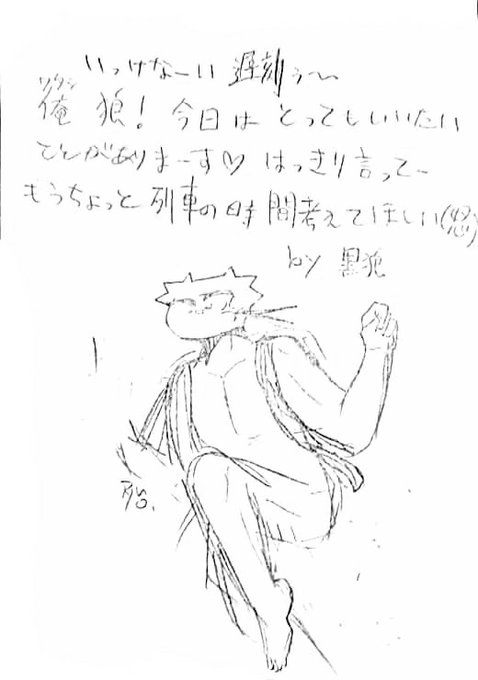 いっけなーい 遅刻ぅ〜
ワタシ
俺 狼! 今日は とってもいいたい
ことがありまーす♡ はっきり言って〜
もうちょっと列車の時間考えてほしい(怒)
by 黒狼